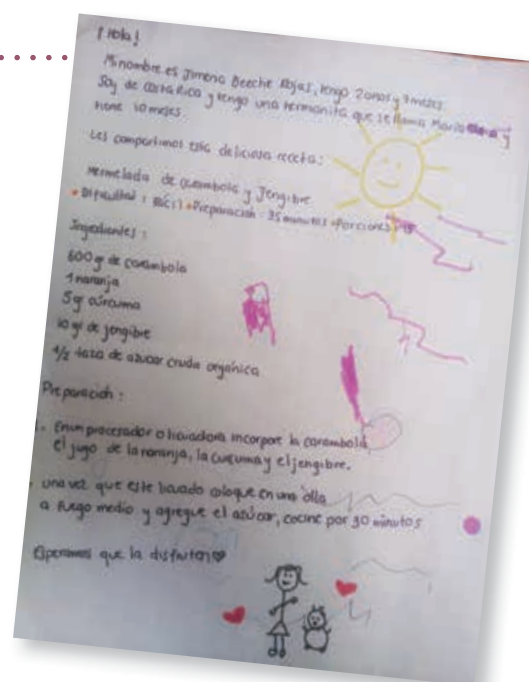 ¡Hola!
Mi nombre es Jimena Beeche Rojas, tengo 2 años y 7 meses.
Soy de Costa Rica y tengo una hermanita que se llama María y
tiene 10 meses
Les compartimos esta deliciosa receta:
Mermelada de carambola y Jengibre
• Dificultad: Fácil • Preparación: 35 minutos • Porciones: 15
Ingredientes:
600 g de carambola
1 naranja
5 gr cúrcuma
10 gr de jengibre
1/2 taza de azucar cruda orgánica
Preparación:
. En un procesador o licuadora incorpore la carambola
el jugo de la naranja, la cúrcuma y el jengibre.
. una vez que este licuado coloque en una olla
a fuego medio y agregue el azúcar, cocine por 30 minutos
Esperamos que la disfruten